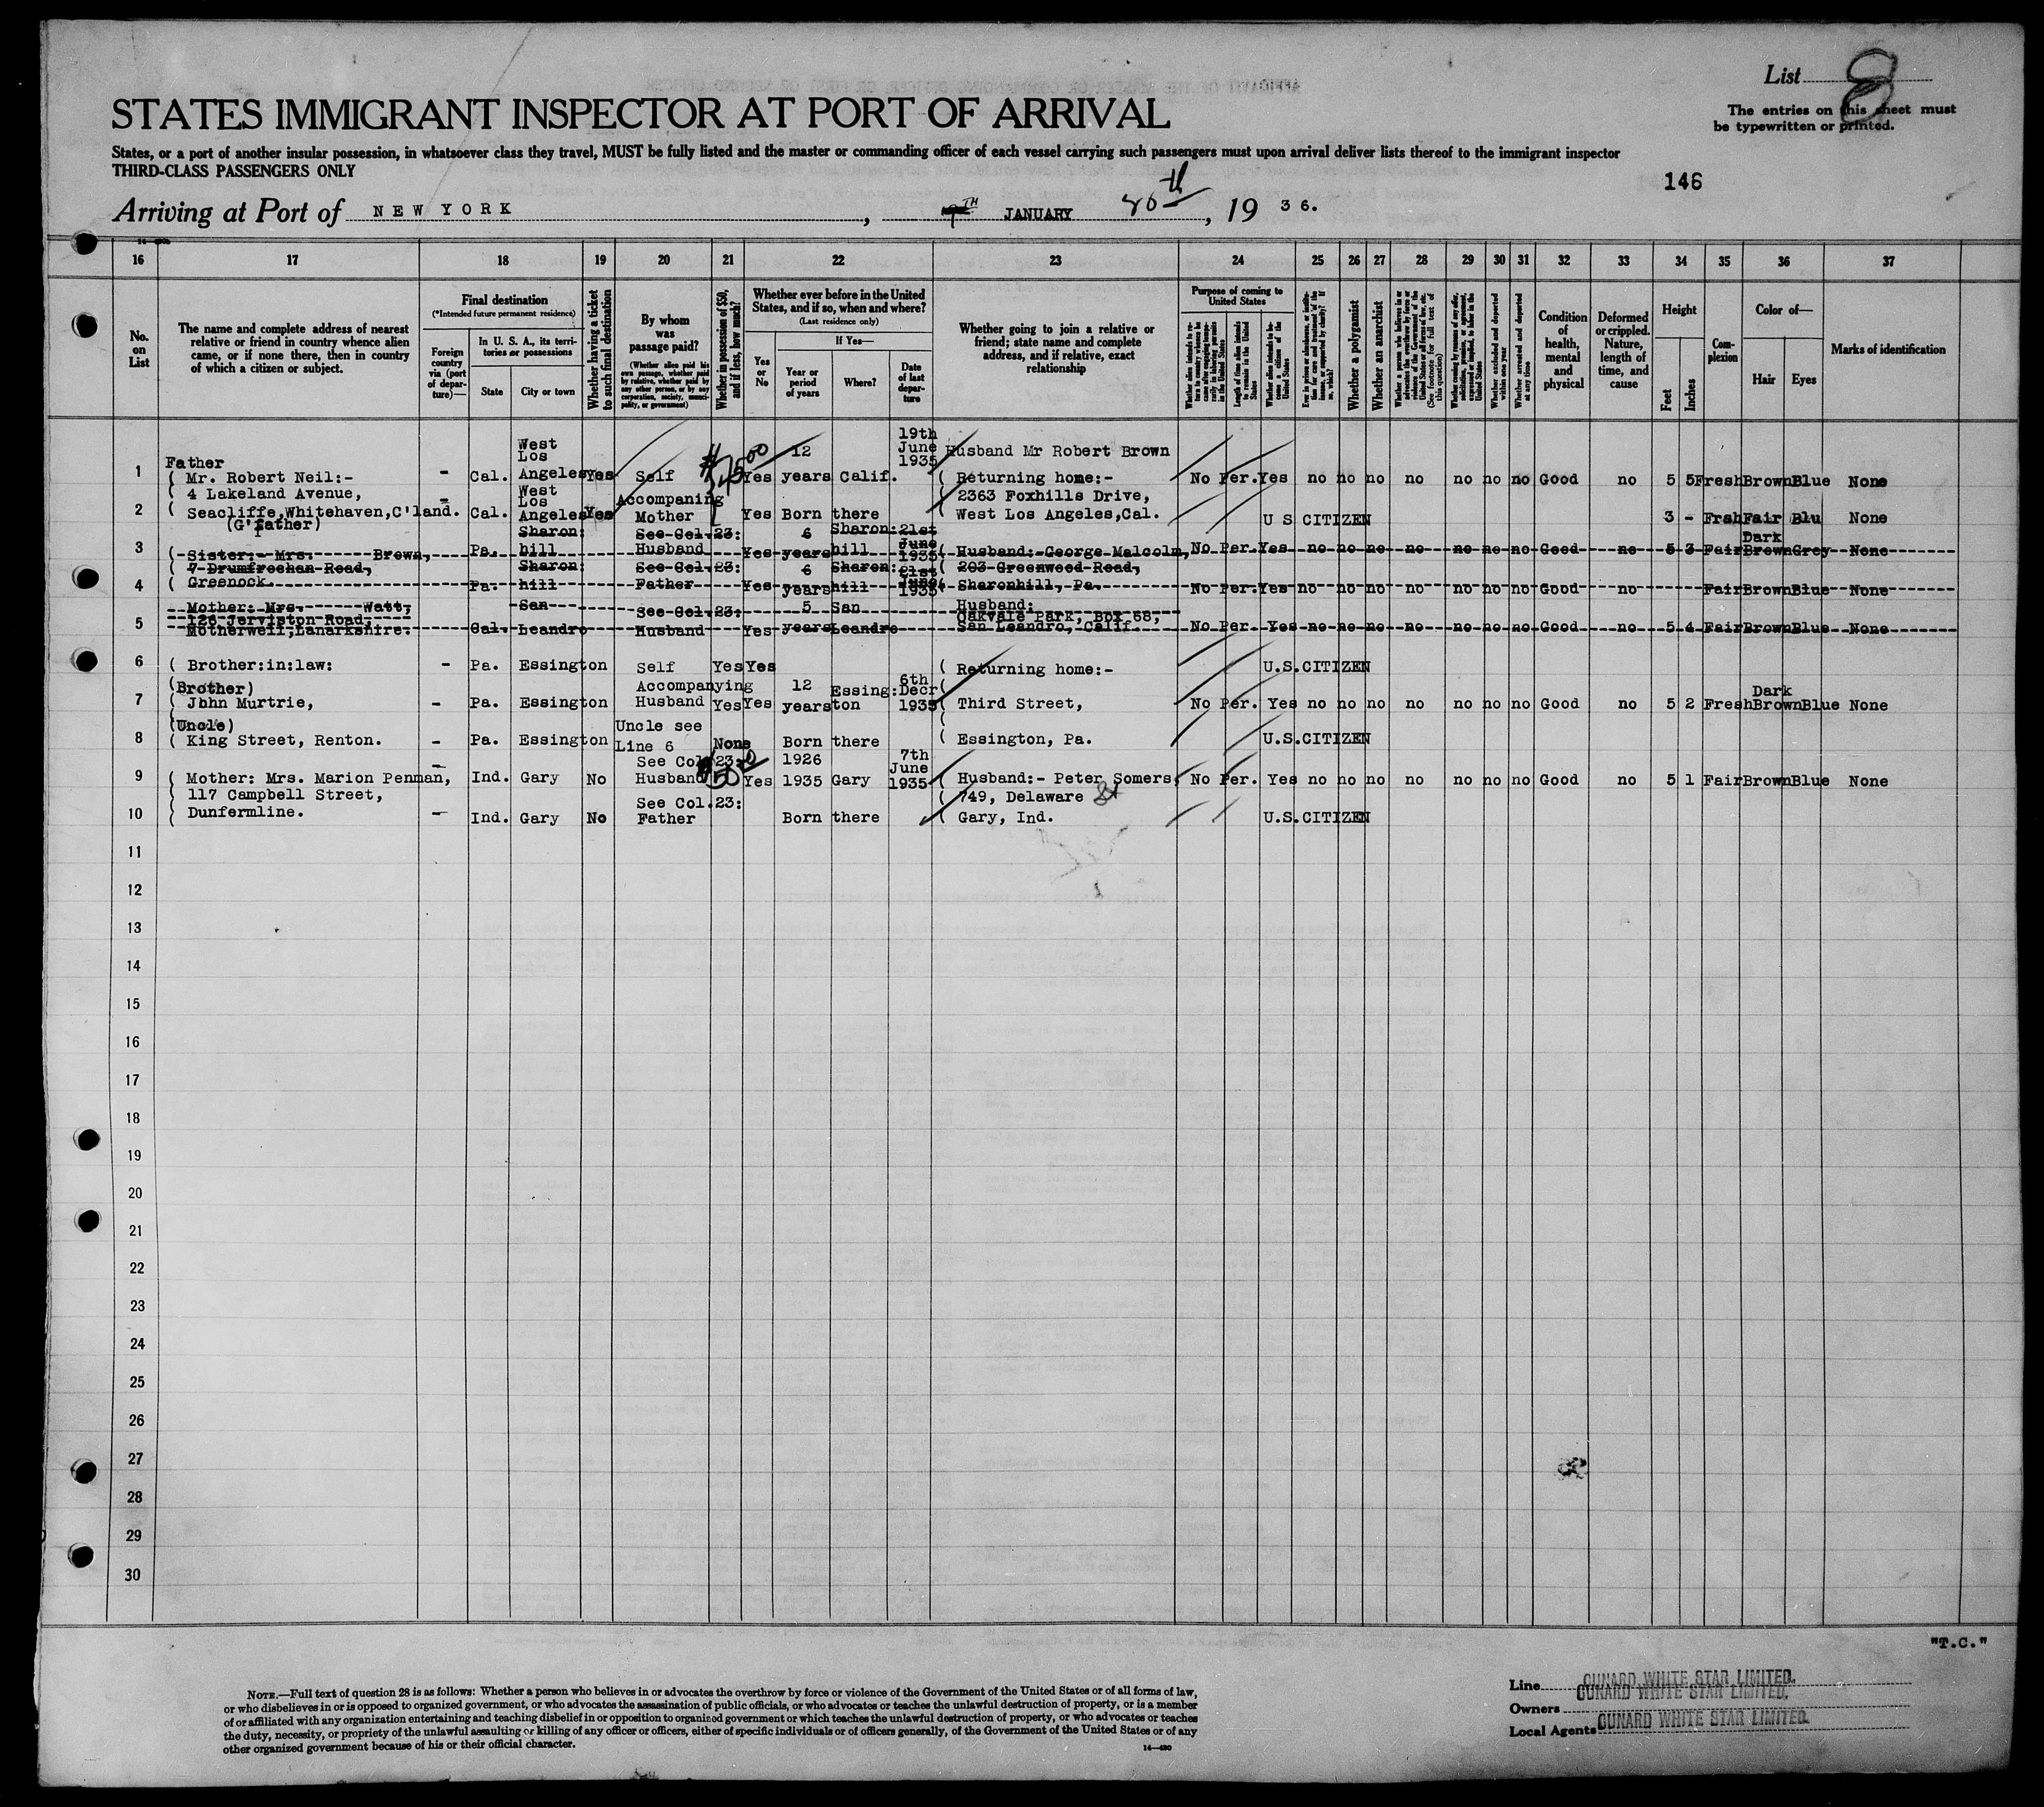 List 8
The entries on this sheet must
be typewritten or printed.
STATES IMMIGRANT INSPECTOR AT PORT OF ARRIVAL
States, or a port of another insular possession, in whatsoever class they travel, MUST be fully listed and the master or commanding officer of each vessel carrying such passengers must upon arrival deliver lists thereof to the immigrant inspector
THIRD-CLASS PASSENGERS ONLY
146
Arriving at Port of NEW YORK, TH JANUARY th, 19 36.
16 17 18 19 20 21 22 23 24 25 26 27 28 29 30 31 32 33 34 35 36 37
No. on List
The name and complete address of nearest relative or friend in country whence alien came, or if none there, then in country of which a citizen or subject.
Final destination
(*Intended future permanent residence)
Foreign country via (port of departure)—
In U. S. A., its territories or possessions
State
City or town
Whether having a ticket to such final destination
By whom was passage paid?
(Whether alien paid his own passage, whether paid by relative, whether paid by any other person, or by any corporation, society, municipality, or government)
Whether in possession of $50, and if less, how much?
Whether ever before in the United States, and if so, when and where?
(Last residence only)
Yes or No
If Yes—
Year or period of years
Where?
Date of last departure
Whether going to join a relative or friend; state name and complete address, and if relative, exact relationship
Purpose of coming to United States
Length of time alien intends to remain in the United States
Whether alien intends to become a citizen of the United States
Whether a polygamist
Whether an anarchist
(See footnote for full text of this question)
Whether excluded and deported within one year
Whether arrested and deported at any time
Condition of health, mental and physical
Deformed or crippled. Nature, length of time, and cause
Height
Feet
Inches
Complexion
Color of—
Hair
Eyes
Marks of identification
1 Father ( Mr. Robert Neil:- - Cal. West Los Angeles Yes Self Yes 12 years Calif. 19th June 1935 Husband Mr Robert Brown ( Returning home:- No Per. Yes no no no no no no no Good no 5 5 Fresh Brown Blue None
( 4 Lakeland Avenue, ( 2363 Foxhills Drive,
2 ( Seacliffe,Whitehaven,C'land. (G'father) - Cal. West Los Angeles Yes Accompaning Mother Yes Born there ( West Los Angeles,Cal. U S CITIZEN 3 - Frsh Fair Blu None
3 ( Sister:- Mrs. Brown, Pa. Sharon: hill See Col. 23: Husband Yes 6 years Sharon: hill 21st June 1935 ( Husband:- George Malcolm, No Per. Yes no no no no no no no Good no 5 3 Fair Dark Brown Grey None
( 7 Drumfrochan Road, ( 203 Greenwood Road,
4 ( Greenock. Pa. Sharon: hill See Col. 23: Father Yes 6 years Sharon: hill 21st June 1935 ( Sharonhill, Pa. No Per. Yes no no no no no no no Good no Fair Brown Blue None
5 Mother: Mrs. Watt, 126 Jerviston Road, Motherwell, Lanarkshire. Cal. San Leandro See Col. 23: Husband Yes 5 years San Leandro Husband: Oakvale Park, Box 58, San Leandro, Calif. No Per. Yes no no no no no no no Good no 5 4 Fair Brown Blue None
6 ( Brother:in:law: - Pa. Essington Self Yes Yes ( Returning home:- U.S.CITIZEN
7 (Brother) ( John Murtrie, - Pa. Essington Accompanying Husband Yes Yes 12 years Essing: ton 6th Decr 1935 ( Third Street, No Per. Yes no no no no no no no Good no 5 2 Fresh Dark Brown Blue None
8 (Uncle) ( King Street, Renton. - Pa. Essington Uncle see Line 6 None Born there ( Essington, Pa. U.S.CITIZEN
9 ( Mother: Mrs. Marion Penman, - Ind. Gary No See Col. 23: Husband Yes 1926 1935 Gary 7th June 1935 ( Husband:- Peter Somers, No Per. Yes no no no no no no no Good no 5 1 Fair Brown Blue None
( 117 Campbell Street, ( 749, Delaware St
10 ( Dunfermline. - Ind. Gary No See Col.23: Father Born there ( Gary, Ind. U.S.CITIZEN
11
12
13
14
15
16
17
18
19
20
21
22
23
24
25
26
27
28
29
30
"T.C."
NOTE.—Full text of question 28 is as follows: Whether a person who believes in or advocates the overthrow by force or violence of the Government of the United States or of all forms of law,
or who disbelieves in or is opposed to organized government, or who advocates the assassination of public officials, or who advocates or teaches the unlawful destruction of property, or is a member
of or affiliated with any organization entertaining and teaching disbelief in or opposition to organized government or which teaches the unlawful destruction of property, or who advocates or teaches
the duty, necessity, or propriety of the unlawful assaulting or killing of any officer or officers, either of specific individuals or of officers generally, of the Government of the United States or of any
other organized government because of his or their official character.
14—430
Line CUNARD WHITE STAR LIMITED.
Owners CUNARD WHITE STAR LIMITED.
Local Agents CUNARD WHITE STAR LIMITED.